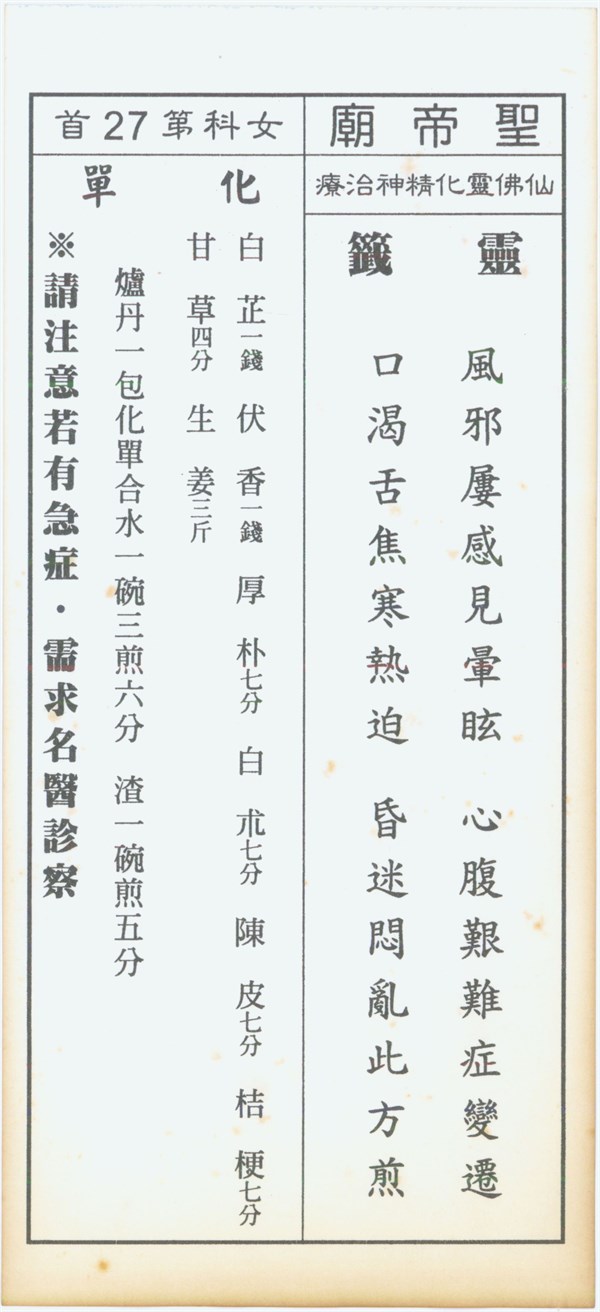 聖帝廟
仙佛靈化精神治療
靈籤
風邪屢感見暈眩 心腹艱難症變遷
口渴舌焦寒熱迫 昏迷悶亂此方煎
女科第27首
化單
白芷一錢 伏香一錢 厚朴七分 白朮七分 陳皮七分 桔梗七分
甘草四分 生姜三斤
爐丹一包化單合水一碗三煎六分 渣一碗煎五分
※請注意若有急症・需求名醫診察